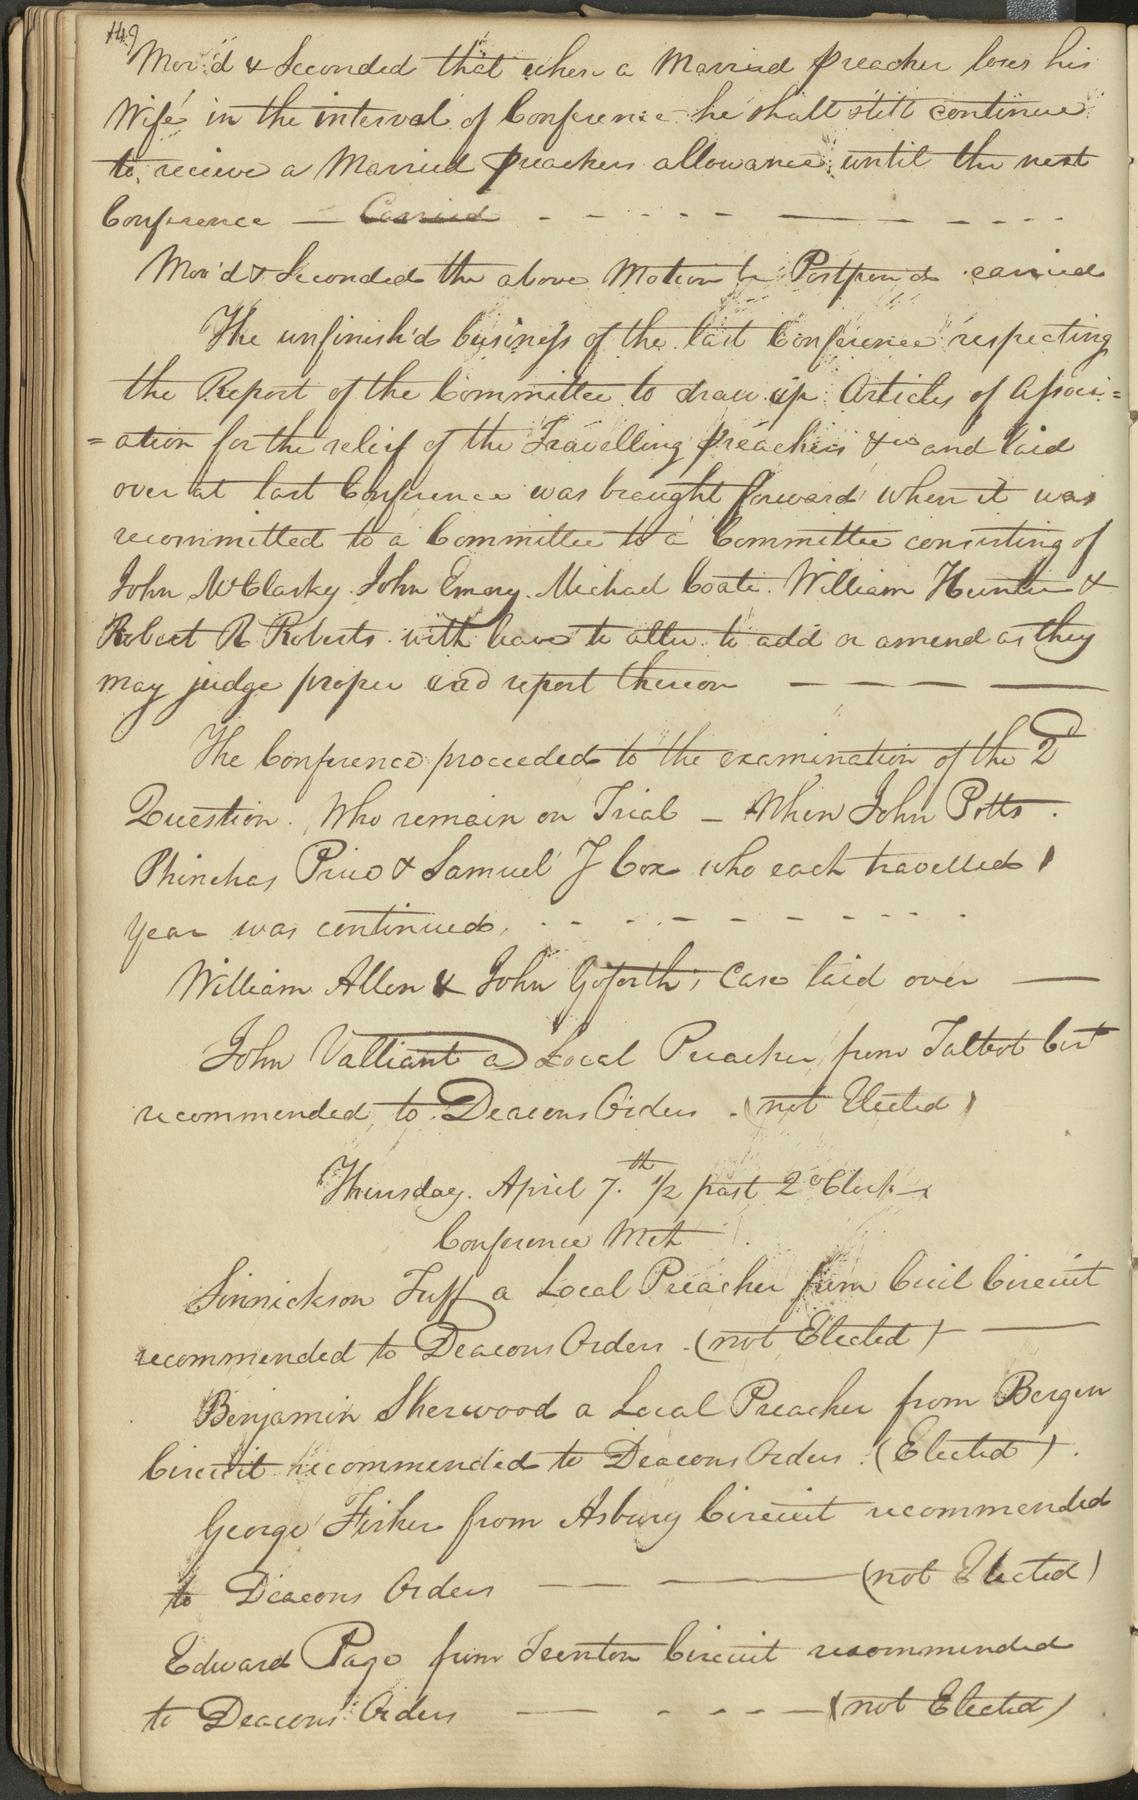 149
Mov'd & Seconded that when a Married preacher loses his
Wife in the interval of Conference he shall still continue
to recieve a Married preachers allowance until the next
Conference — Carried
Mov'd & Seconded the above Motion be Postpon'd carried
The unfinish'd business of the last Conference respecting
the Report of the Committee to draw up Articles of Associ=
=ation for the relief of the Travelling preachers &c and laid
over at last Conference was brought forward when it was
recommitted to a Committee to a Committee consisting of
John McClasky. John Emory. Michael Coate. William Hunter &
Robert R Roberts with leave to alter to add or amend as they
may judge proper and report thereon — — — —
The Conference proceeded to the examination of the 2d
Question. Who remain on Trial — When John Potts.
Phinehas Price & Samuel J Cox who each travelled 1
year was continued,
William Allen & John Goforth's Case laid over —
John Valliant a Local Preacher from Talbot Cirt
recommended to Deacons Orders. (not Elected)
Thursday. April 7.th 1/2 past 2 oClock
Conference Met
Sinnickson Tuff a Local Preacher from Cecil Circuit
recommended to Deacons Orders. (not Elected) —
Benjamin Sherwood a Local Preacher from Bergen
Circuit recommended to Deacons Orders. (Elected).
George Fisher from Asbury Circuit recommended
to Deacons Orders — — (not Elected)
Edward Page from Trenton Circuit recommended
to Deacons Orders — - - - — (not Elected)